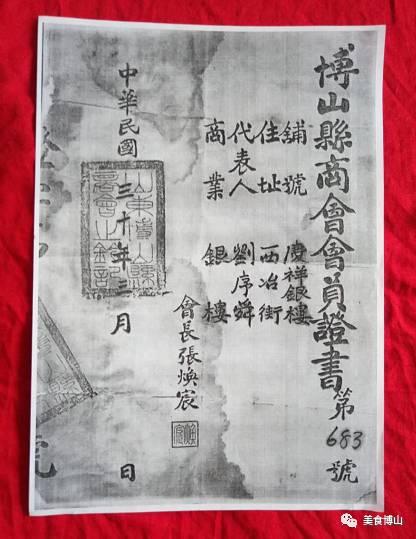 博山縣商會會員證書第683號
舖號 慶祥銀樓
住址 西冶街
代表人 劉序舜
商業 銀樓
會長張煥宸
中華民國三十年三月 日
美食博山